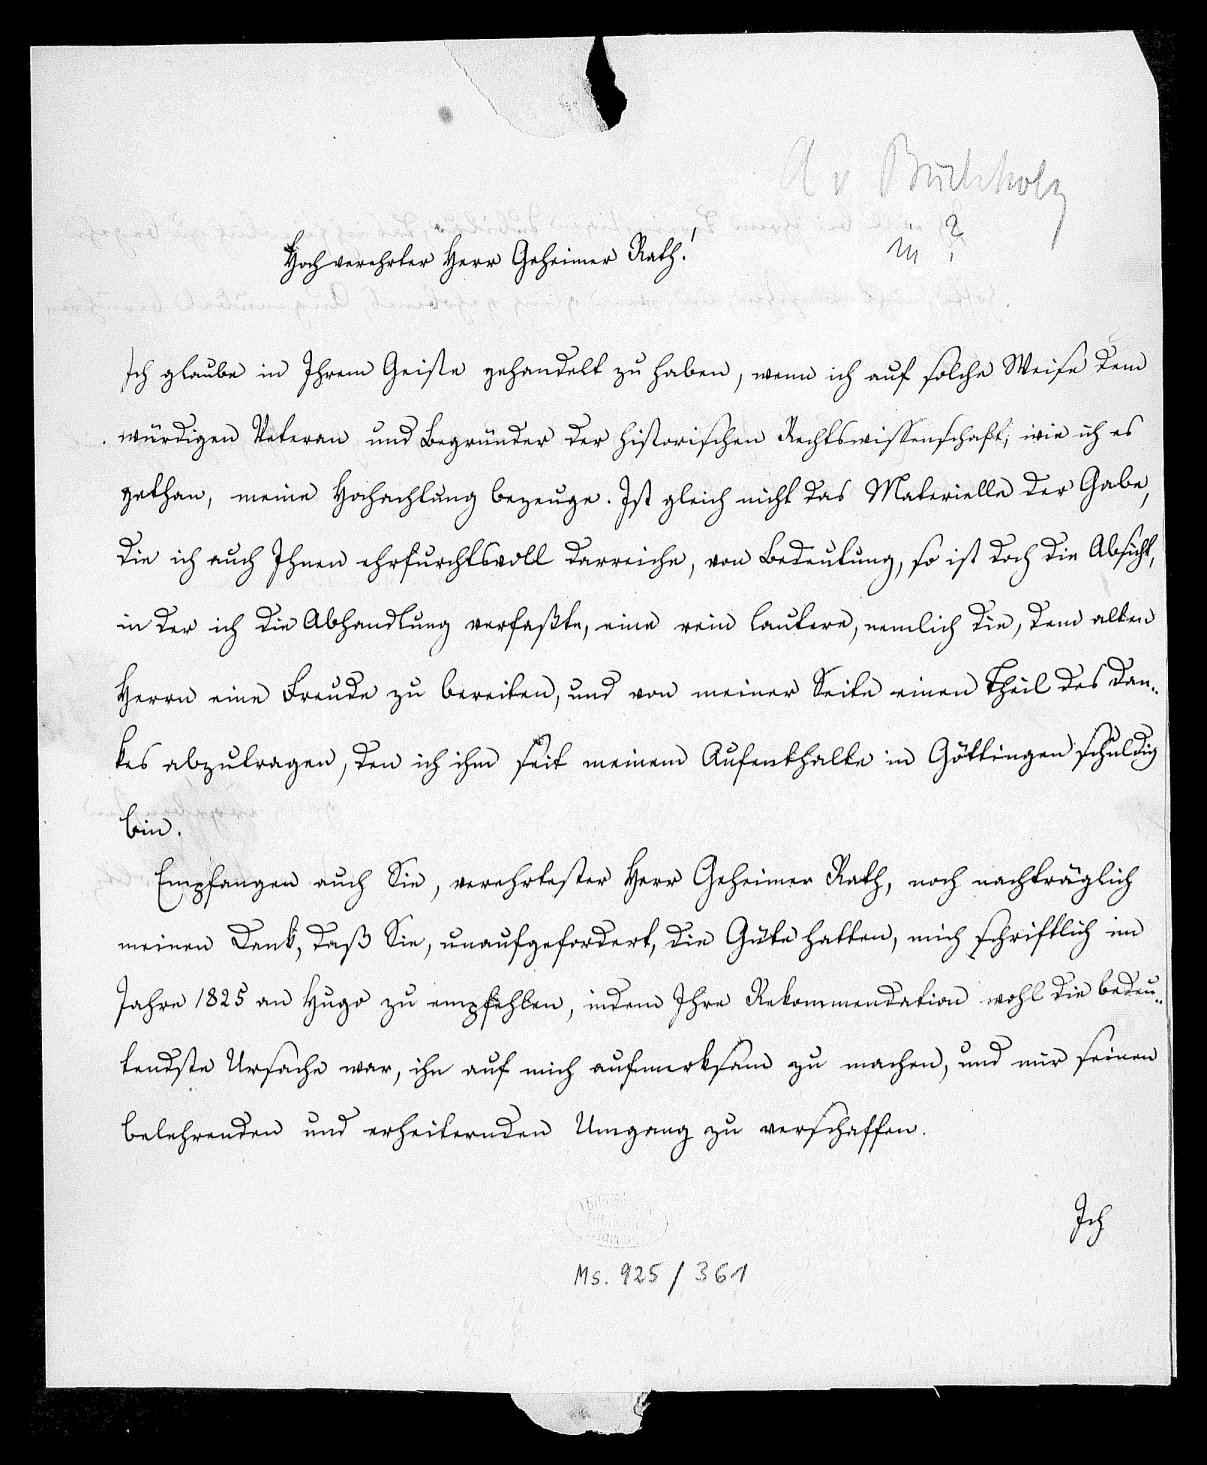 A v Buchholz
m ?
Hochverehrter Herr Geheimer Rath!
Ich glaube in Ihrem Geiste gehandelt zu haben, wenn ich auf solche Weise dem
würdigen Veteran und Begründer der historischen Rechtswissenschaft, wie ich es
gethan, meine Hochachtung bezeuge. Ist gleich nicht das Materielle der Gabe,
die ich auch Ihnen ehrfurchtsvoll darreiche, von Bedeutung, so ist doch die Absicht,
in der ich die Abhandlung verfaßte, eine rein lautere, nemlich die, dem alten
Herrn eine Freude zu bereiten, und von meiner Seite einen Theil des Dan-
kes abzutragen, den ich ihm seit meinem Aufenthalte in Göttingen schuldig
bin.
Empfangen auch Sie, verehrtester Herr Geheimer Rath, noch nachträglich
meinen Dank, daß Sie, unaufgefordert, die Güte hatten, mich schriftlich im
Jahre 1825 an Hugo zu empfehlen, indem Ihre Rekommendation wohl die bedeu-
tendste Ursache war, ihn auf mich aufmerksam zu machen, und mir seinen
belehrenden und erheiternden Umgang zu verschaffen.
Ich
Ms. 925 / 361